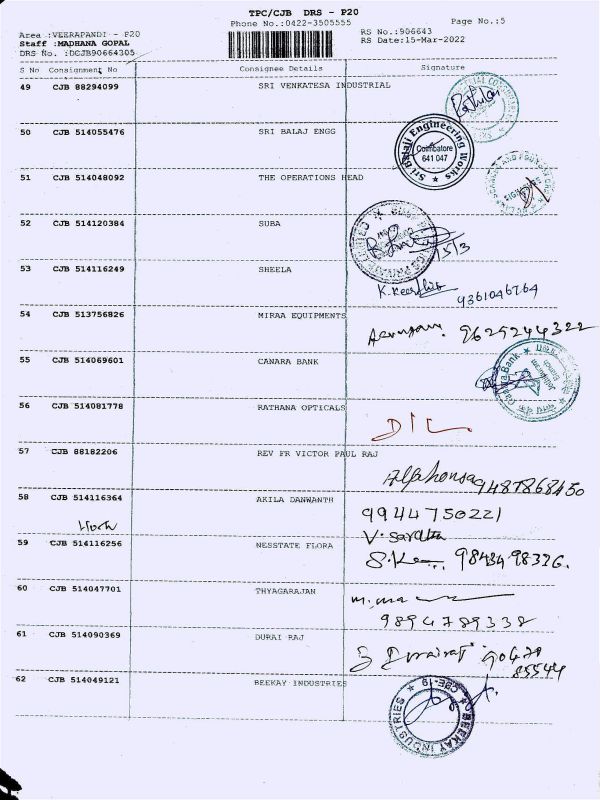 TPC/CJB DRS - P20
Phone No.:0422-3505555
Page No.:5
Area :VEERAPANDI - P20
Staff :MADHANA GOPAL
DRS No. :DCJB90664305
RS No.:906643
RS Date:15-Mar-2022
S No Consignment No Consignee Details Signature
49 CJB 88294099 SRI VENKATESA INDUSTRIAL
50 CJB 514055476 SRI BALAJ ENGG
Sri Balaji Engineering Works
Coimbatore
641 047
51 CJB 514048092 THE OPERATIONS HEAD
52 CJB 514120384 SUBA
15/3
53 CJB 514116249 SHEELA
K. Keerthi
9361046764
54 CJB 513756826 MIRAA EQUIPMENTS
9629244322
55 CJB 514069601 CANARA BANK
Canara Bank
56 CJB 514081778 RATHANA OPTICALS
57 CJB 88182206 REV FR VICTOR PAUL RAJ
Alphonsa 9487868450
58 CJB 514116364 AKILA DANWANTH
9944750221
V. Saratha
59 CJB 514116256 NESSTATE FLORA
9843498326.
60 CJB 514047701 THYAGARAJAN
9894789338
61 CJB 514090369 DURAI RAJ
90479
85544
62 CJB 514049121 BEEKAY INDUSTRIES
BEEKAY INDUSTRIES
CBE-19